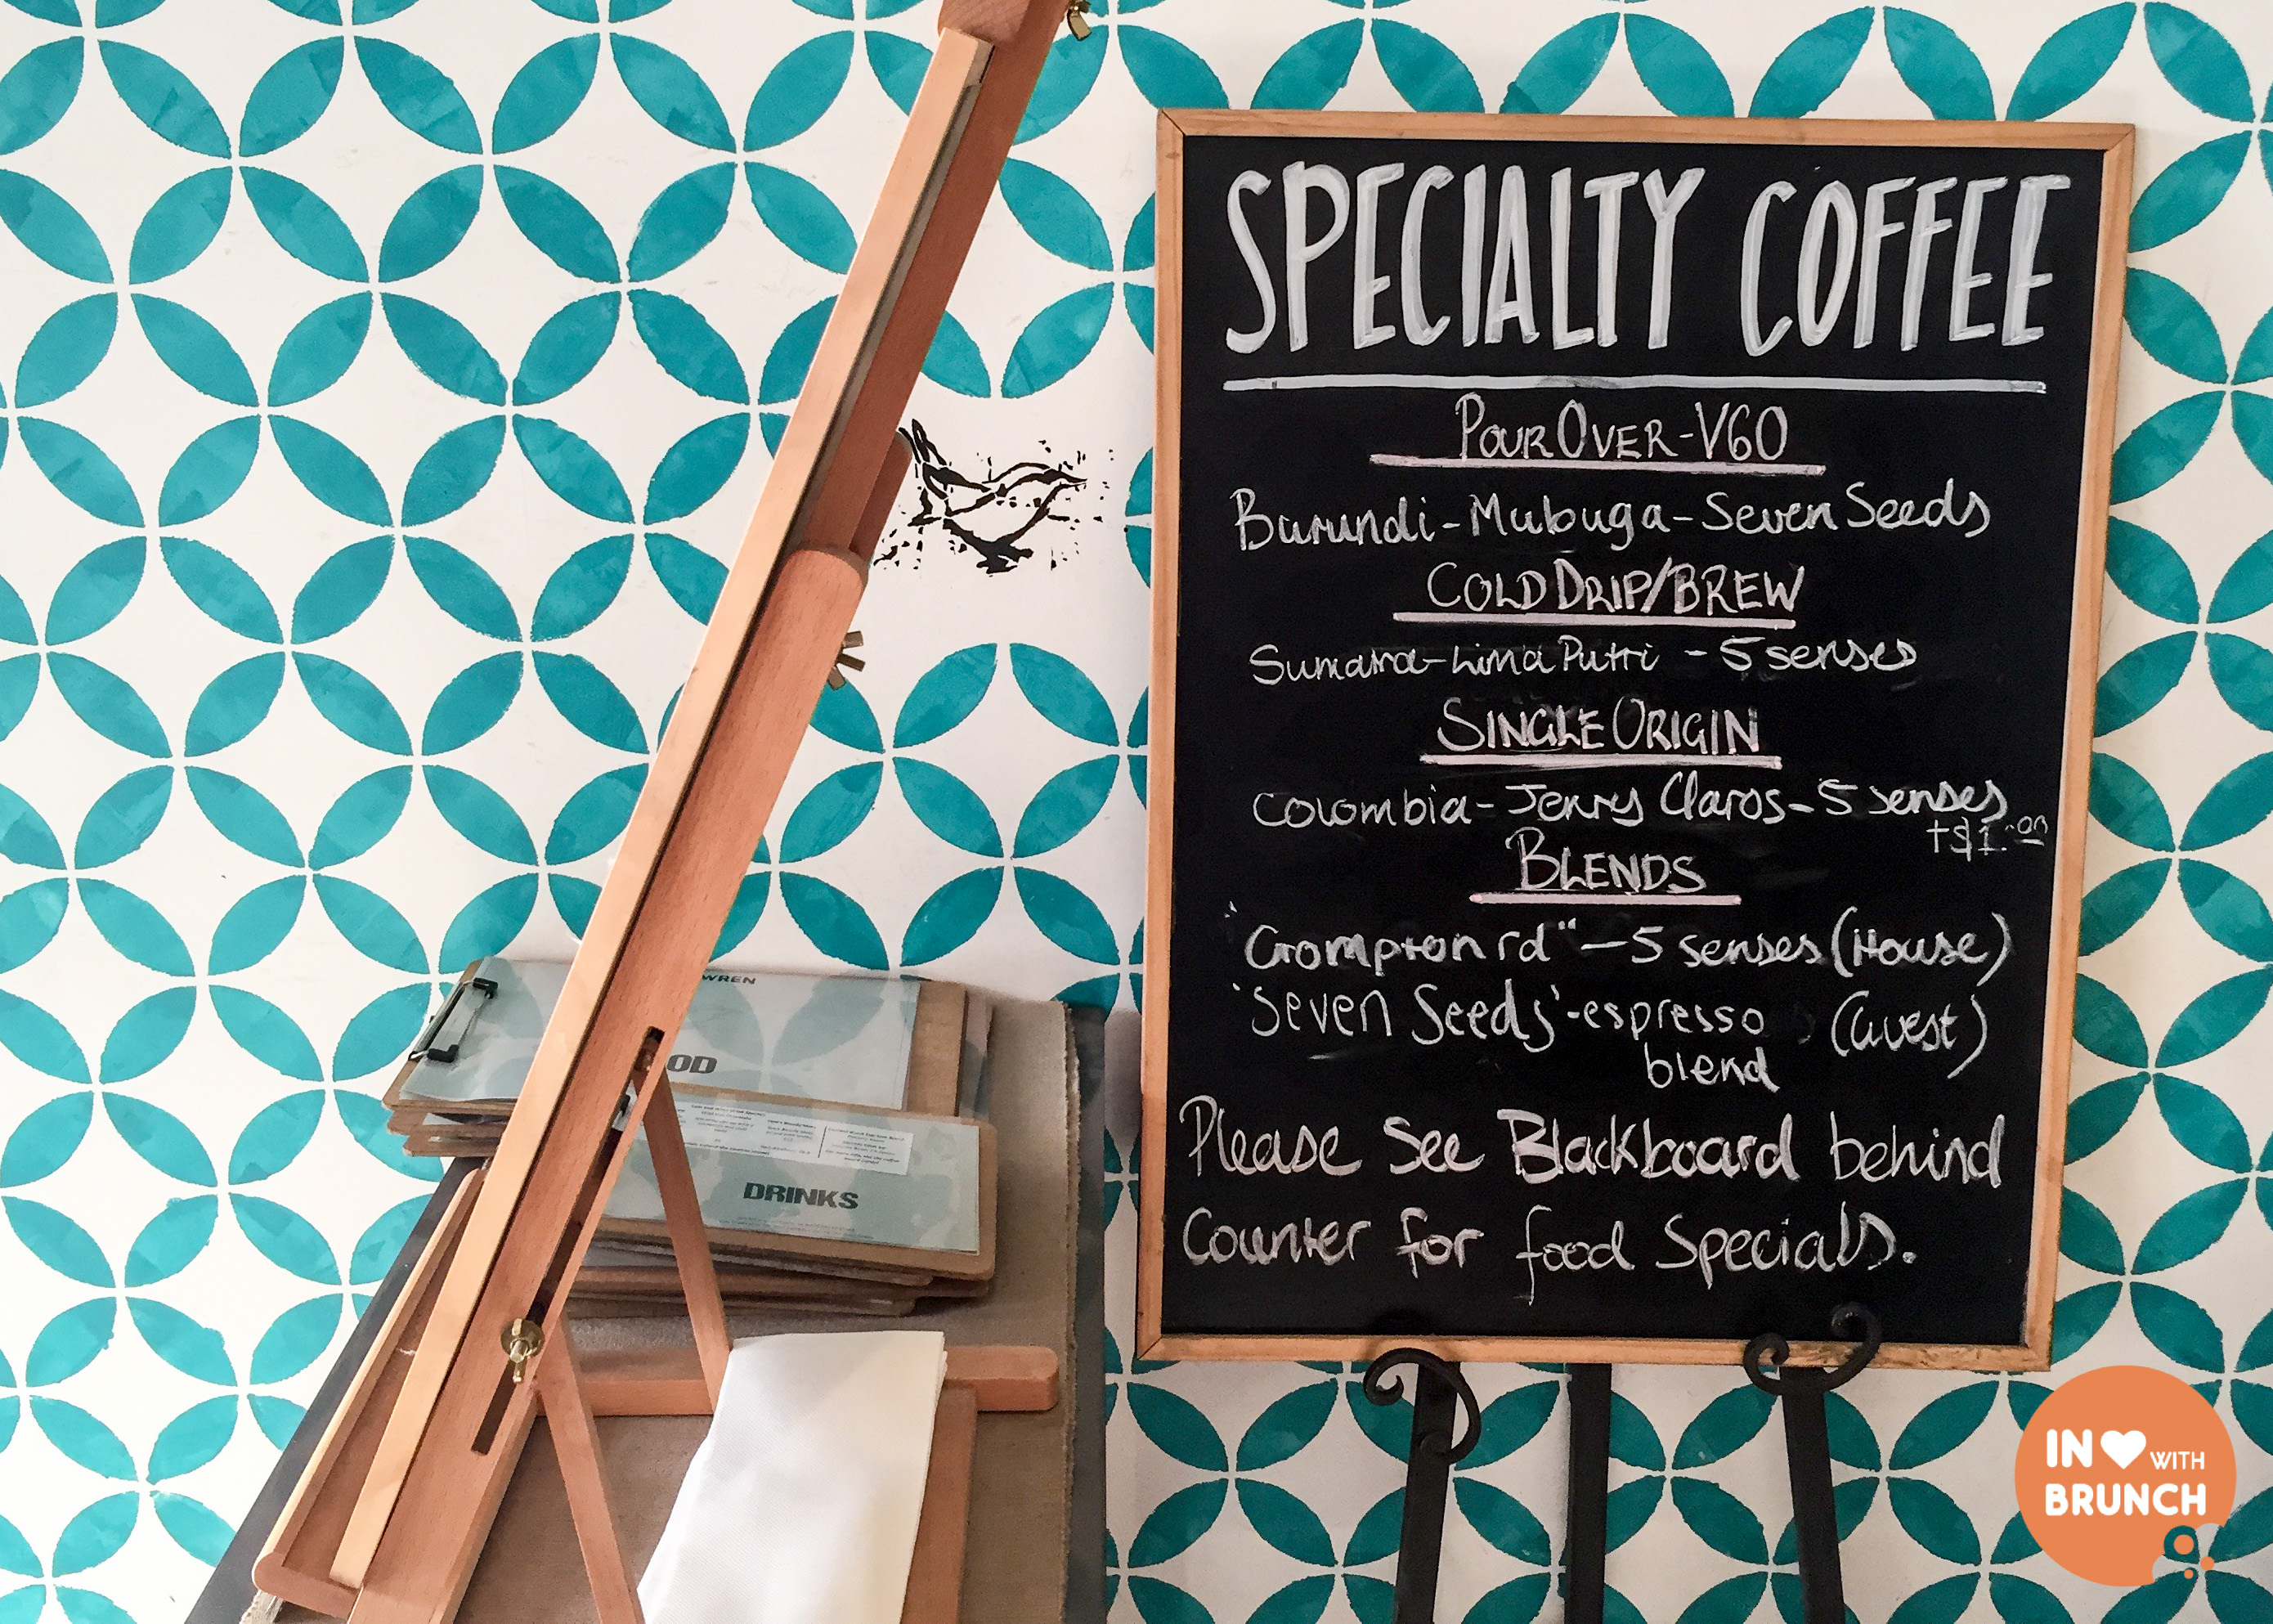 SPECIALTY COFFEE
POUR OVER-V60
Burundi-Mubuga-Seven Seeds
COLD DRIP/BREW
Sumatra-Lima Putri - 5 senses
SINGLE ORIGIN
Colombia-Jerry Claros-5 senses
+$1.00
BLENDS
"Crompton rd"-5 senses (House)
'Seven Seeds'-espresso (Guest)
blend
Please See Blackboard behind
Counter for food Specials.
WREN
OD
DRINKS
IN WITH
BRUNCH